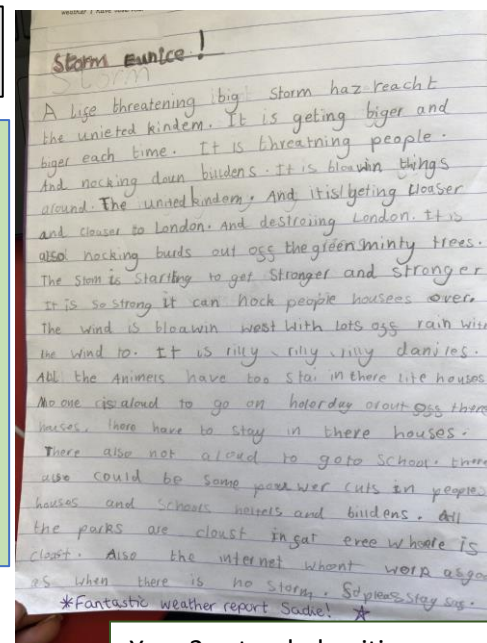 Storm Eunice!
Storm
A Life threatening big Storm haz reacht
the unieted kindem. It is geting biger and
biger each time. It is threatning people.
And nocking doun billdens. It is bloawin things
around. The united kindem. And itis geting cloaser
and cloaser to London. And destroiing London. It is
also nocking burds out off the green minty trees.
The Stom is Starting to get Stronger and stronger
It is so strong it can nock people housees over.
The wind is bloawin west with lots off rain with
the wind to. It is rilly, rilly, rilly
All the Animels have too stai in there houses
No one is aloud to go on holerday orout off there
houses. There have to stay in there houses.
There also not aloud to goto School. there
also could be some power cuts in people
houses and schools and billdens. All
the parks are cloust is
cloust. Also the internet whont work
as when there is no storm. So please stay
*Fantastic weather report Sadie! ☆